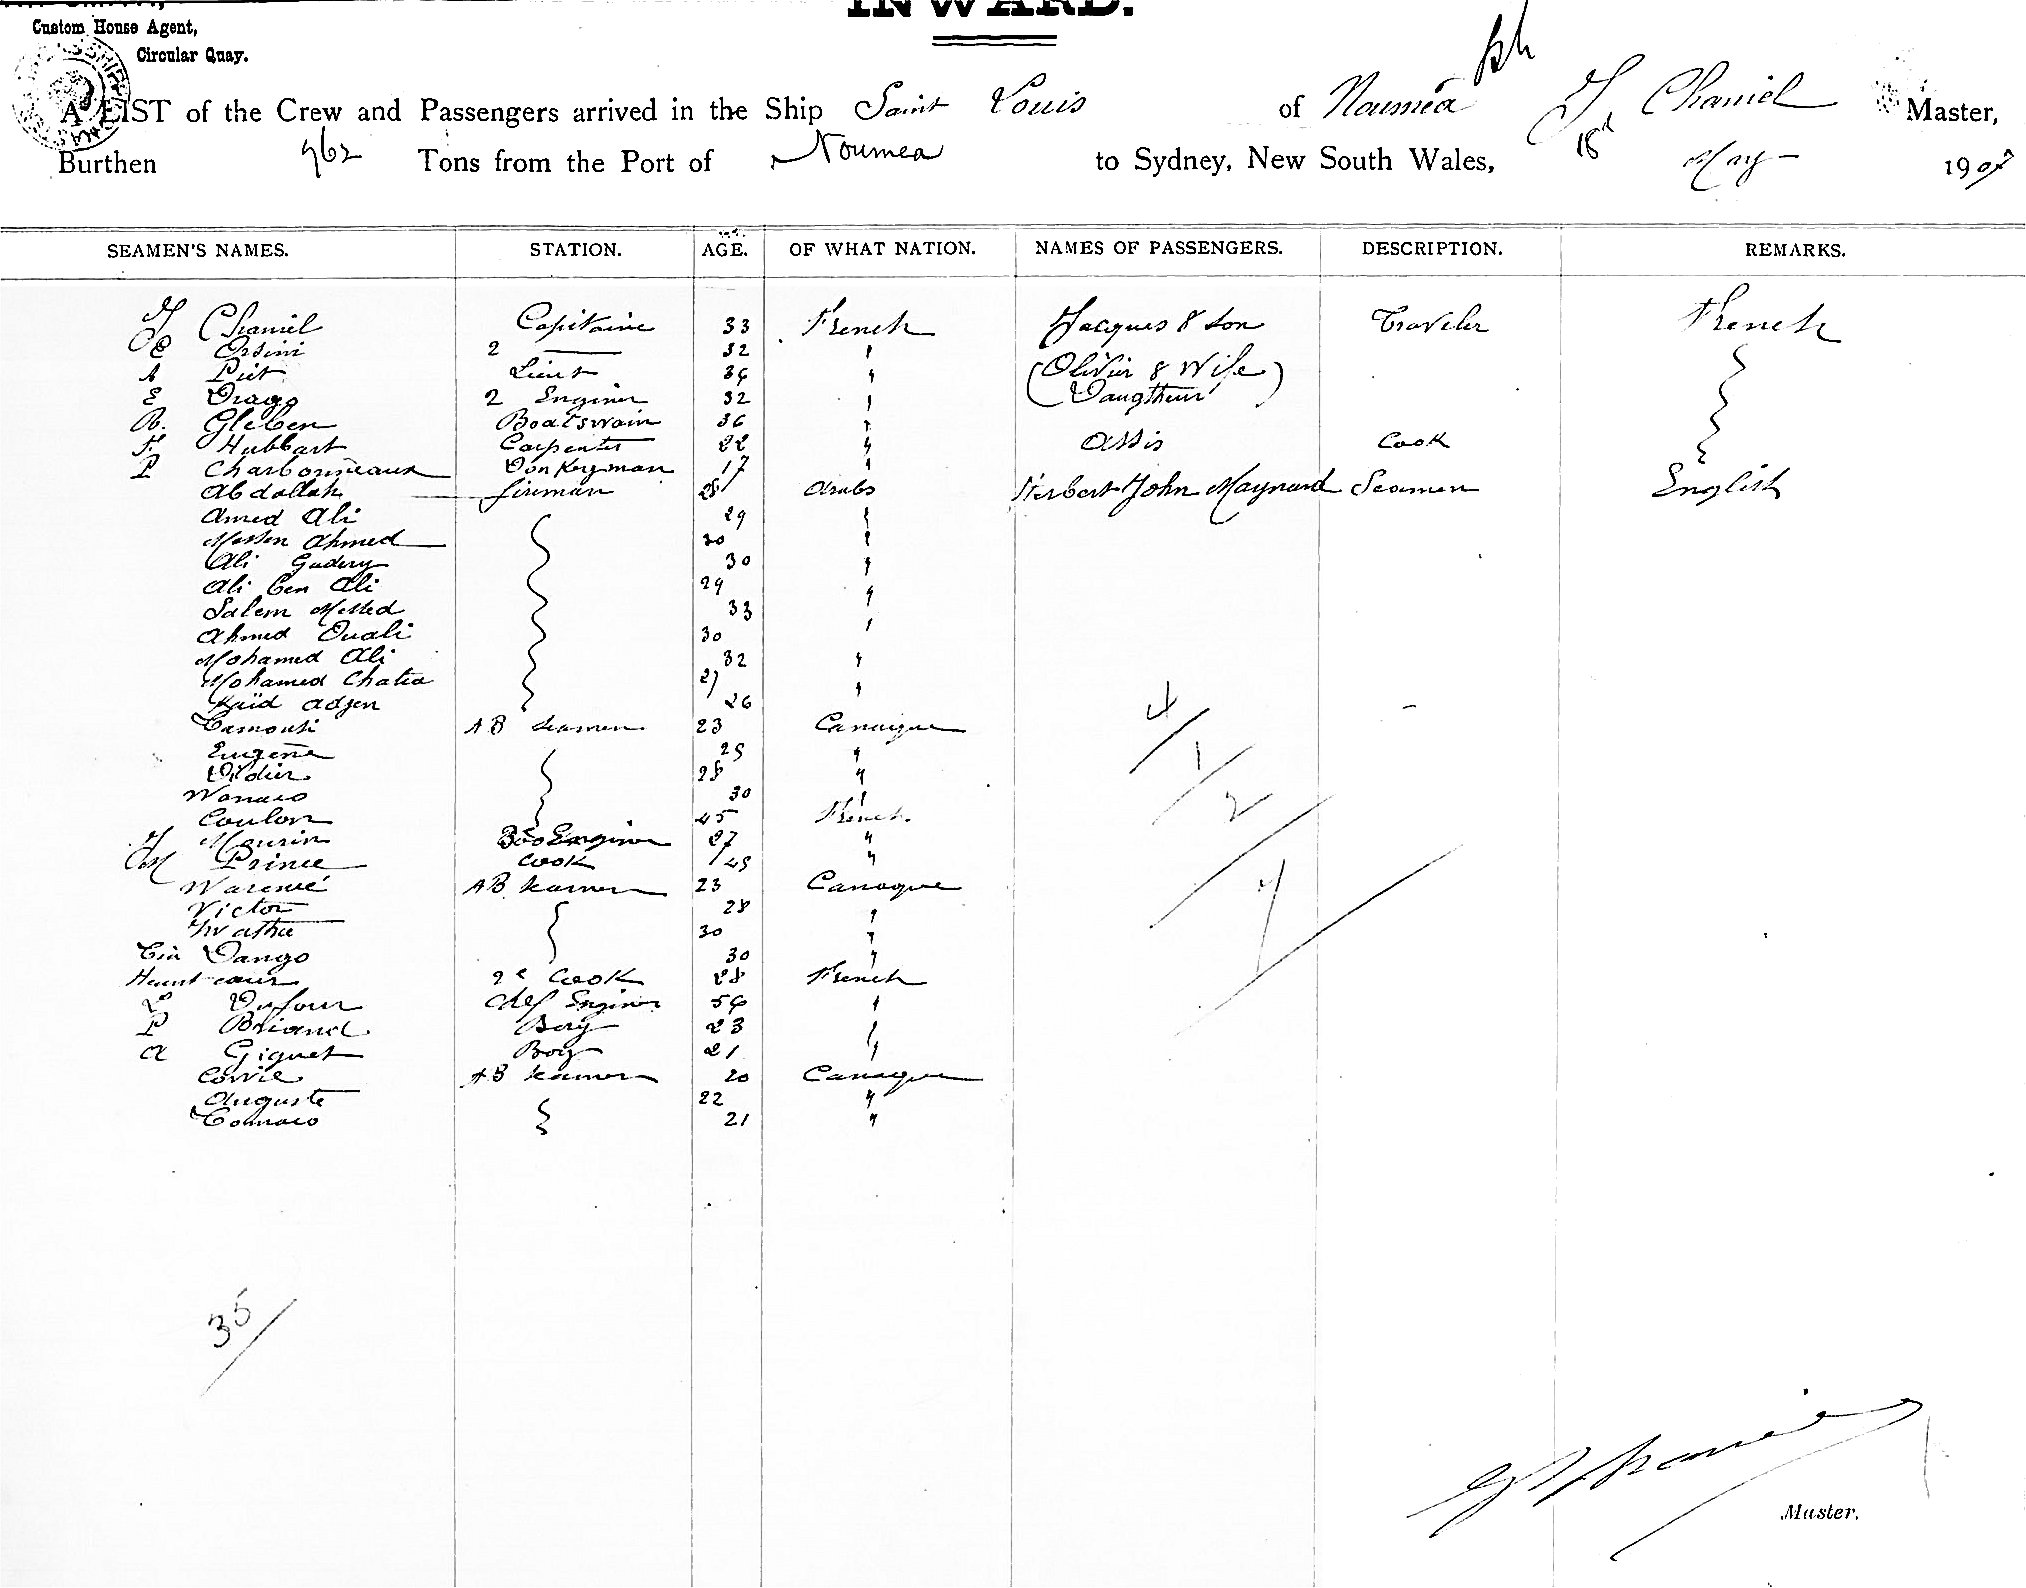 INWARD.
Custom House Agent,
Circular Quay.
A LIST of the Crew and Passengers arrived in the Ship Saint Louis of Nouméa J Chaniel Master,
Burthen 962 Tons from the Port of Noumea to Sydney, New South Wales, 18th May 1907
SEAMEN'S NAMES. STATION. AGE. OF WHAT NATION. NAMES OF PASSENGERS. DESCRIPTION. REMARKS.
J Chaniel Capitaine 33 French Jacques & Son Traveler French
Orsini 2 —— 32 " (Olivier & Wife
A Piet Lieut 34 " Daugtheur)
E Drago 2 Enginer 32 "
R. Gleben Boatswain 36 "
F. Hubbart Carpenter 22 " Assis Cook
P Charbonneaux Donkeyman 17 "
Abdallah fireman 28 Arabs Herbert John Maynard Seamen English
Amed Ali 29 "
Ahmed 30 "
Ali 30 "
Ali ben Ali 29 "
Salem 33 "
Ahmed Ouali 30
Mohamed Ali 32 "
Mohamed 27 "
26
AB Seamen 23 Canaque
Eugene 25 "
Didier 28 "
30 "
Coulon 45 French
27 "
Prince Cook 45 "
AB Seamen 23 Canaque
Victor 28 "
30 "
Dango 30 "
2e Cook 28 French
L Dufour Chef Enginer 54 "
P Briand Boy 23
A Giquet Boy 21 "
AB Seamen 20 Canaque
Auguste 22 "
21 "
4
1
2
7
35
Master.